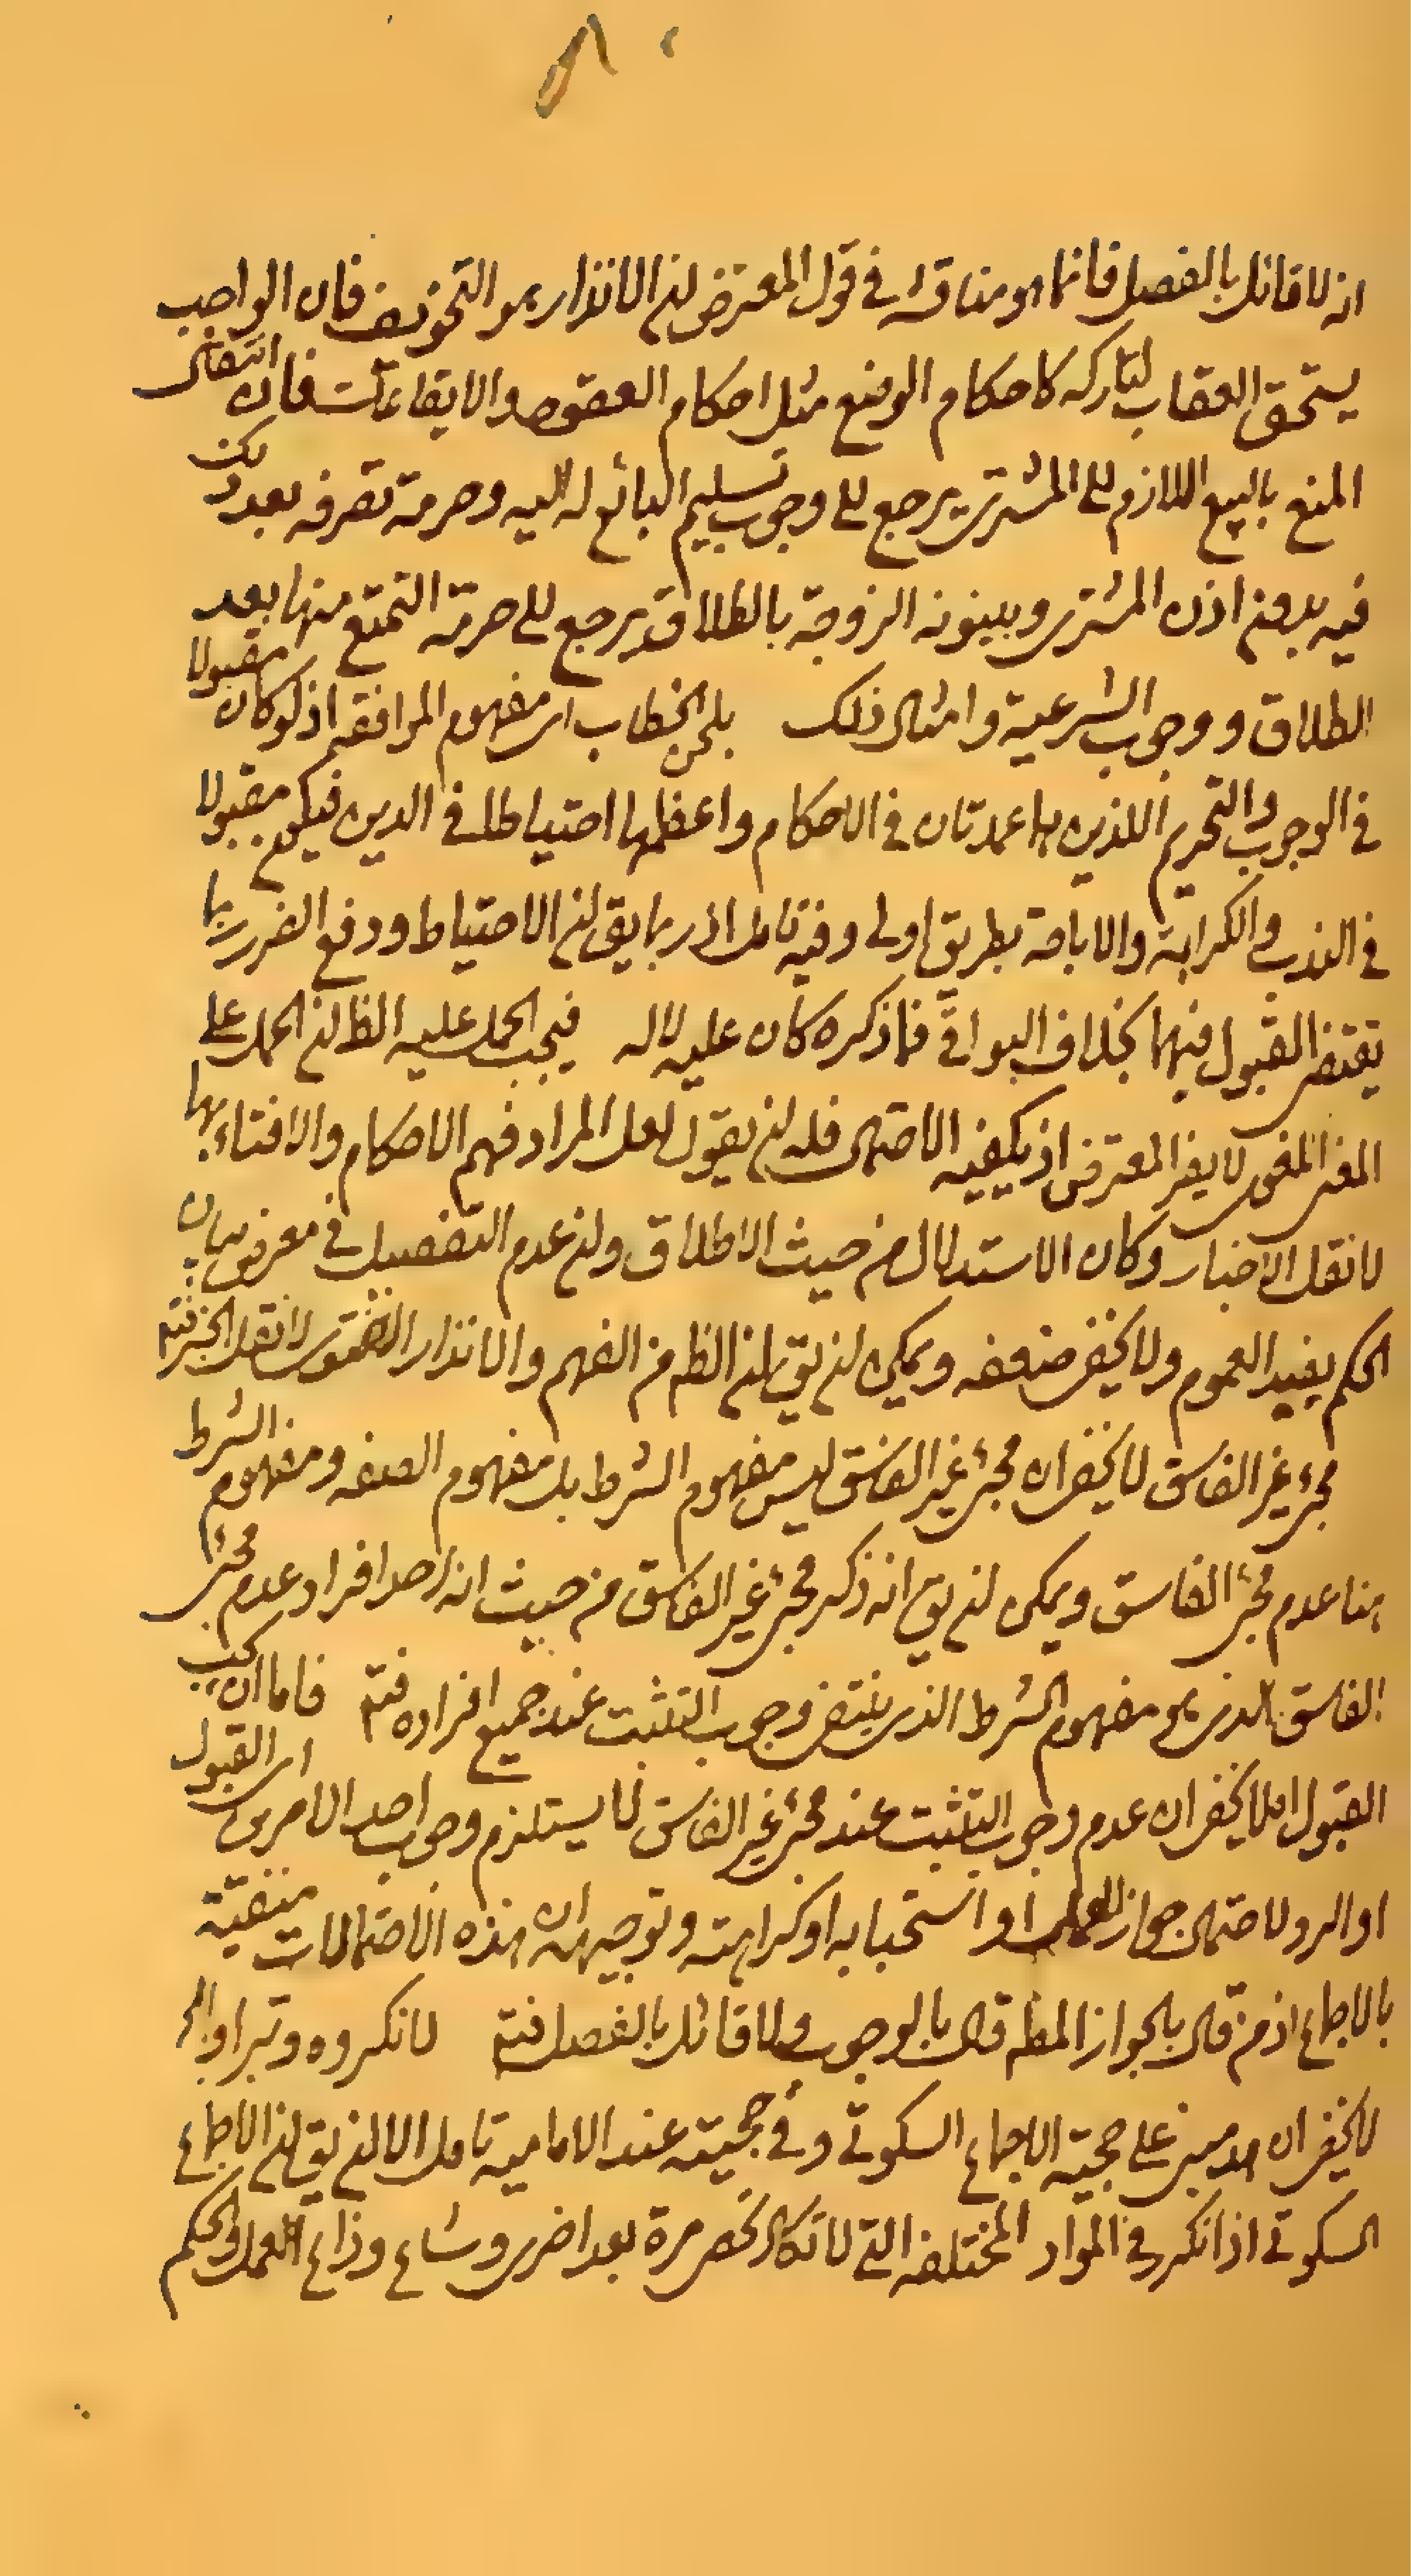 انه لا قائل بالفصل فانما هو مناقشة في قول المعترض لان الانذار هو التخويف فان الواجب
يستحق العقاب لتاركه كاحكام الوضع مثل احكام العقود والايقاعات فان انتقال
المنع بالبيع اللازم الى المشتري يرجع الى وجوب تسليم البائع له اليه وحرمة تصرفه بعد ذلك
فيه بدون اذن المشتري وبينونة الزوجة بالطلاق يرجع الى حرمة التمتع منها بعد
الطلاق ووجوب الشرعية وامثال ذلك بلحن الخطاب اي مفهوم الموافقة اذ لو كان مقبولا
في الوجوب والتحريم اللذين هما عمدتان في الاحكام واعظمها احتياطا في الدين فيكون مقبولا
في الندب والكراهة والاباحة بطريق اولى وفيه تامل اذ ربما يق ان الاحتياط ودفع الضرر ربما
يقتضى القبول فيهما بخلاف البواقي فما ذكره كان عليه لا له فيجب الحمل عليه الظ ان الحمل على
المعنى اللغوي لا يضر المعترض اذ يكفيه الاحتمال فله ان يقول لعل المراد فهم الاحكام والافتاء بها
لا نقل الاخبار وكان الاستدلال من حيث الاطلاق وان عدم التفصيل في معرض بيان
الحكم يفيد العموم ولا يخفى ضعفه ويمكن ان يق ان الظ من الفهم والانذار الفتوى لا نقل الخبر فتم
مجئ غير الفاسق لا يخفى ان مجئ غير الفاسق ليس مفهوم الشرط بل مفهوم الصفه ومفهوم الشرط
هنا عدم مجئ الفاسق ويمكن ان يق انه ذكر مجئ غير الفاسق من حيث انه احد افراد عدم مجئ
الفاسق الذي هو مفهوم الشرط الذي ينتفي وجوب التثبت عند جميع افراده فتم فاما ان يجب
القبول اه لا يخفى ان عدم وجوب التثبت عند مجئ غير الفاسق لا يستلزم وجوب احد الامرين اي القبول
او الرد لاحتمال جواز العمل او استحبابه او كراهته وتوجيهه ان هذه الاحتمالات منفية
بالاجماع اذ من قال بالجواز المط قال بالوجوب ولا قائل بالفصل فتم لانكروه وتبراوا الخ
لا يخفى ان هذا مبني على حجية الاجماع السكوتي وفي حجيته عند الامامية تامل الا ان يق ان الاجماع
السكوتي اذا تكرر في المواد المختلفة التي لا تكاد تحصى مرة بعد اخرى وشاع وذاع العمل والحكم